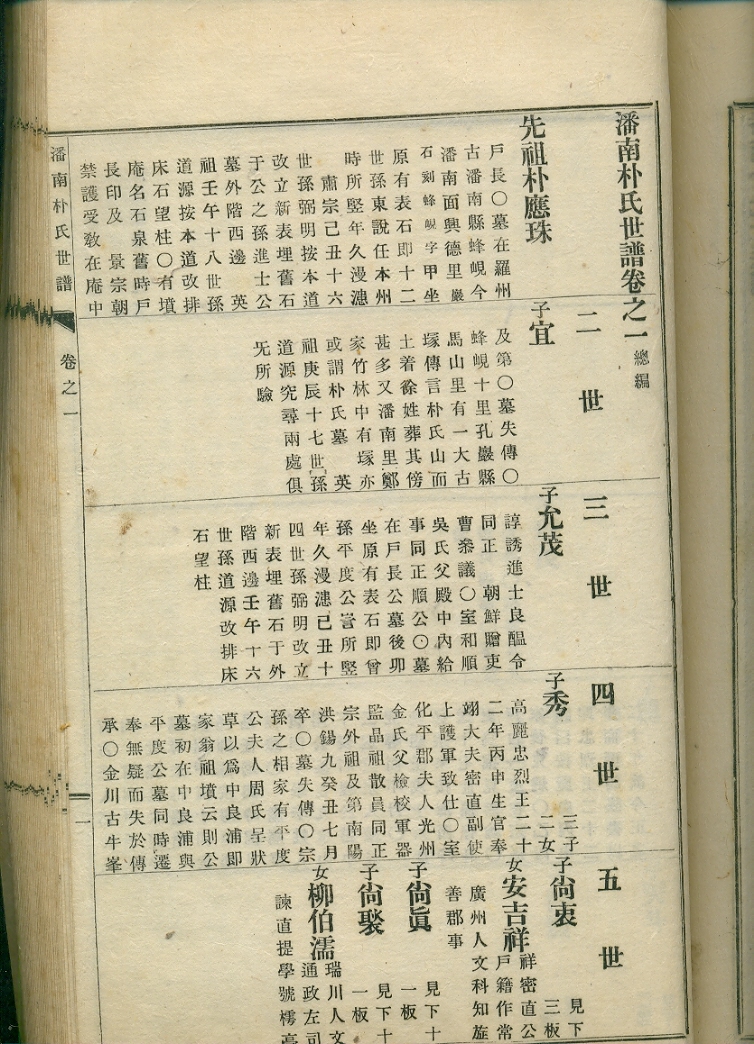 潘南朴氏世譜卷之一 總編
先祖朴應珠
戶長〇墓在羅州
古潘南縣蜂峴今
潘南面興德里巖
石刻蜂峴字甲坐
原有表石卽十二
世孫東說任本州
時所竪年久漫漶
肅宗己丑十六
世孫弼明按本道
改立新表埋舊石
于公之孫進士公
墓外階西邊 英
祖壬午十八世孫
道源按本道改排
床石望柱〇有墳
庵名石泉舊時戶
長印及 景宗朝
禁護受敎在庵中
二世
子宜
及第〇墓失傳〇
蜂峴十里孔巖縣
馬山里有一大古
塚傳言朴氏山而
土着徐姓葬其傍
甚多又潘南里鄭
家竹林中有塚亦
或謂朴氏墓 英
祖庚辰十七世孫
道源究尋兩處俱
旡所驗
三世
子允茂
諄誘進士良醞令
同正 朝鮮贈吏
曹叅議〇室和順
吳氏父殿中內給
事同正順公〇墓
在戶長公墓後卯
坐原有表石卽曾
孫平度公訔所竪
年久漫漶己丑十
四世孫弼明改立
新表埋舊石于外
階西邊壬午十六
世孫道源改排床
石望柱
四世
子秀
三子
二女
高麗忠烈王二十
二年丙申生官奉
翊大夫密直副使
上護軍致仕〇室
化平郡夫人光州
金氏父檢校軍器
監晶祖散員同正
宗外祖及第南陽
洪錫九癸丑七月
卒〇墓失傳〇宗
孫之相家有平度
公夫人周氏呈狀
草以爲中良浦卽
家翁祖墳云則公
墓初在中良浦與
平度公墓同時遷
奉無疑而失於傳
承〇金川古牛峯
五世
子尙衷
見下
三板
女安吉祥
祥密直公
戶籍作常
廣州人文科知旌
善郡事
子尙眞
見下十
一板
子尙褧
見下十
一板
女柳伯濡
瑞川人文
通政左司
諫直提學號樗亭
潘南朴氏世譜 卷之一 一